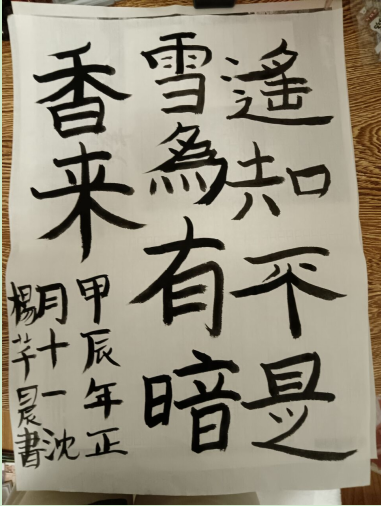 遙知不是
雪為有暗
香来
甲辰年正
月十一沈
楊芊晨書